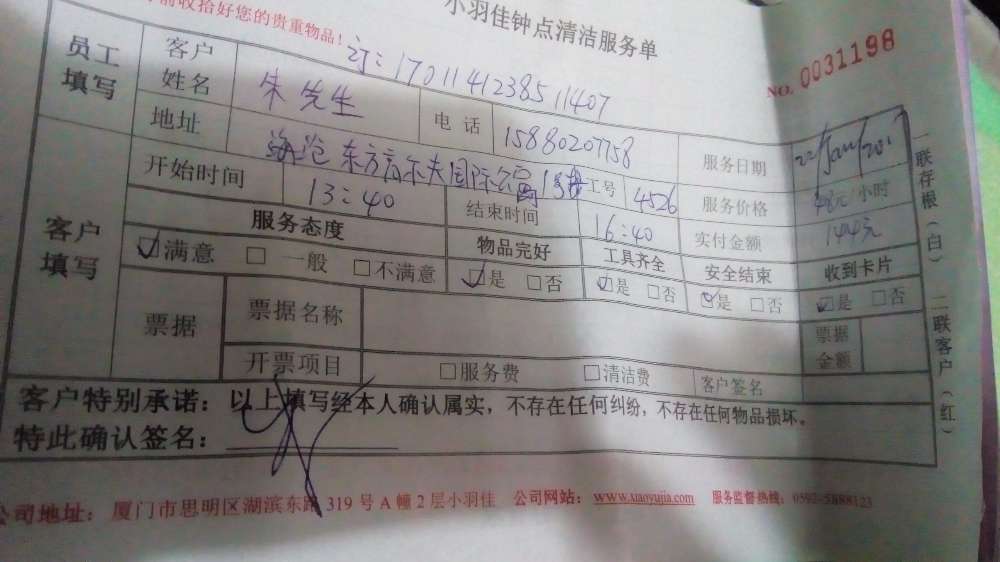 前收拾好您的贵重物品!
小羽佳钟点清洁服务单
NO. 0031198
订:1701141238511407
员工填写
客户姓名 朱先生 电话 15880207758 服务日期 22/Jan/201
地址 海沧东方高尔夫国际公寓1号楼 工号 4526 服务价格 48元/小时
开始时间 13:40 结束时间 16:40 实付金额 144元
客户填写
服务态度 物品完好 工具齐全 安全结束 收到卡片
☑满意 □一般 □不满意 ☑是 □否 ☑是 □否 ☑是 □否 ☑是 □否
票据 票据名称 票据金额
开票项目 □服务费 □清洁费 客户签名
客户特别承诺:以上填写经本人确认属实,不存在任何纠纷,不存在任何物品损坏。
特此确认签名:
公司地址:厦门市思明区湖滨东路319号A幢2层小羽佳 公司网站:www.xiaoyujia.com 服务监督热线:0592-5888123
一联存根(白)
二联客户(红)